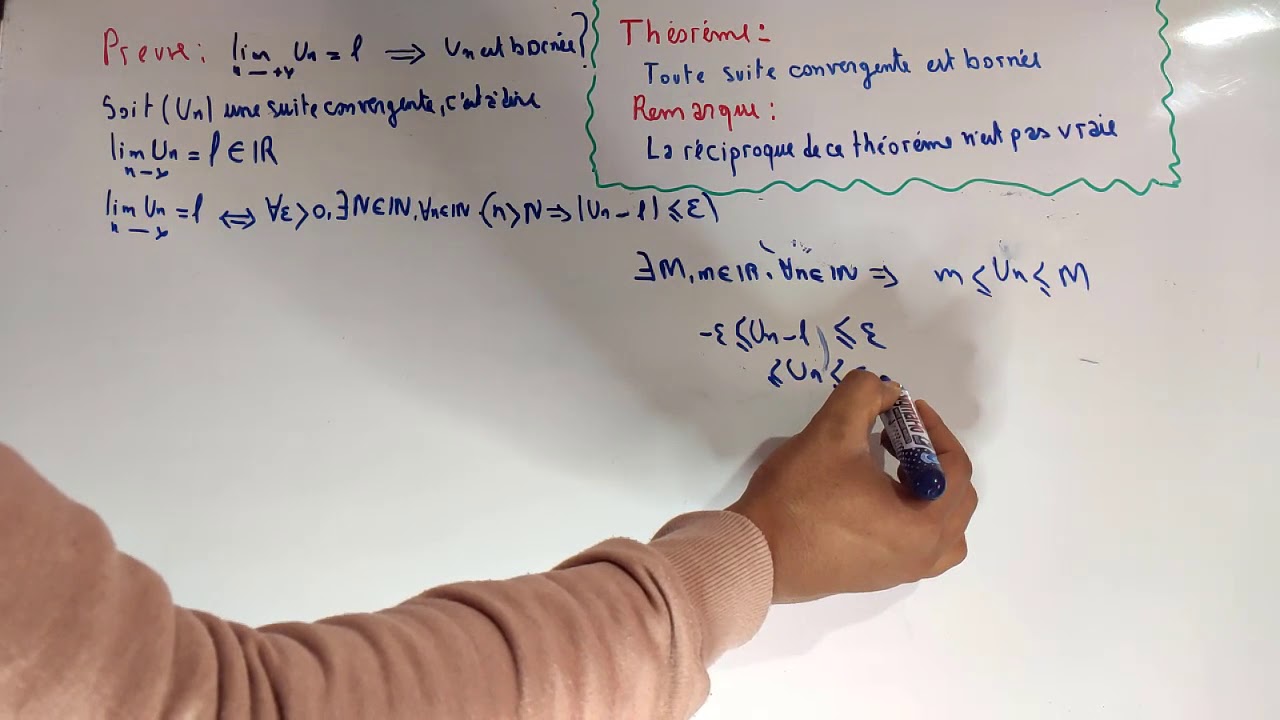 Preuve : lim Un = l ⟹ Un est bornée ?
n → +∞
Soit (Un) une suite convergente, c'est à dire
lim Un = l ∈ IR
n → ∞
lim Un = l ⟺ ∀ε > 0, ∃N ∈ IN, ∀n ∈ IN (n > N ⟹ |Un - l| ≤ ε)
n → ∞
Théoréme :
Toute suite convergente est bornée
Remarque :
La réciproque de ce théoréme n'est pas vraie
∃M, m ∈ IR, ∀n ∈ IN ⟹ m ≤ Un ≤ M
-ε ≤ Un - l ≤ ε
≤ Un ≤